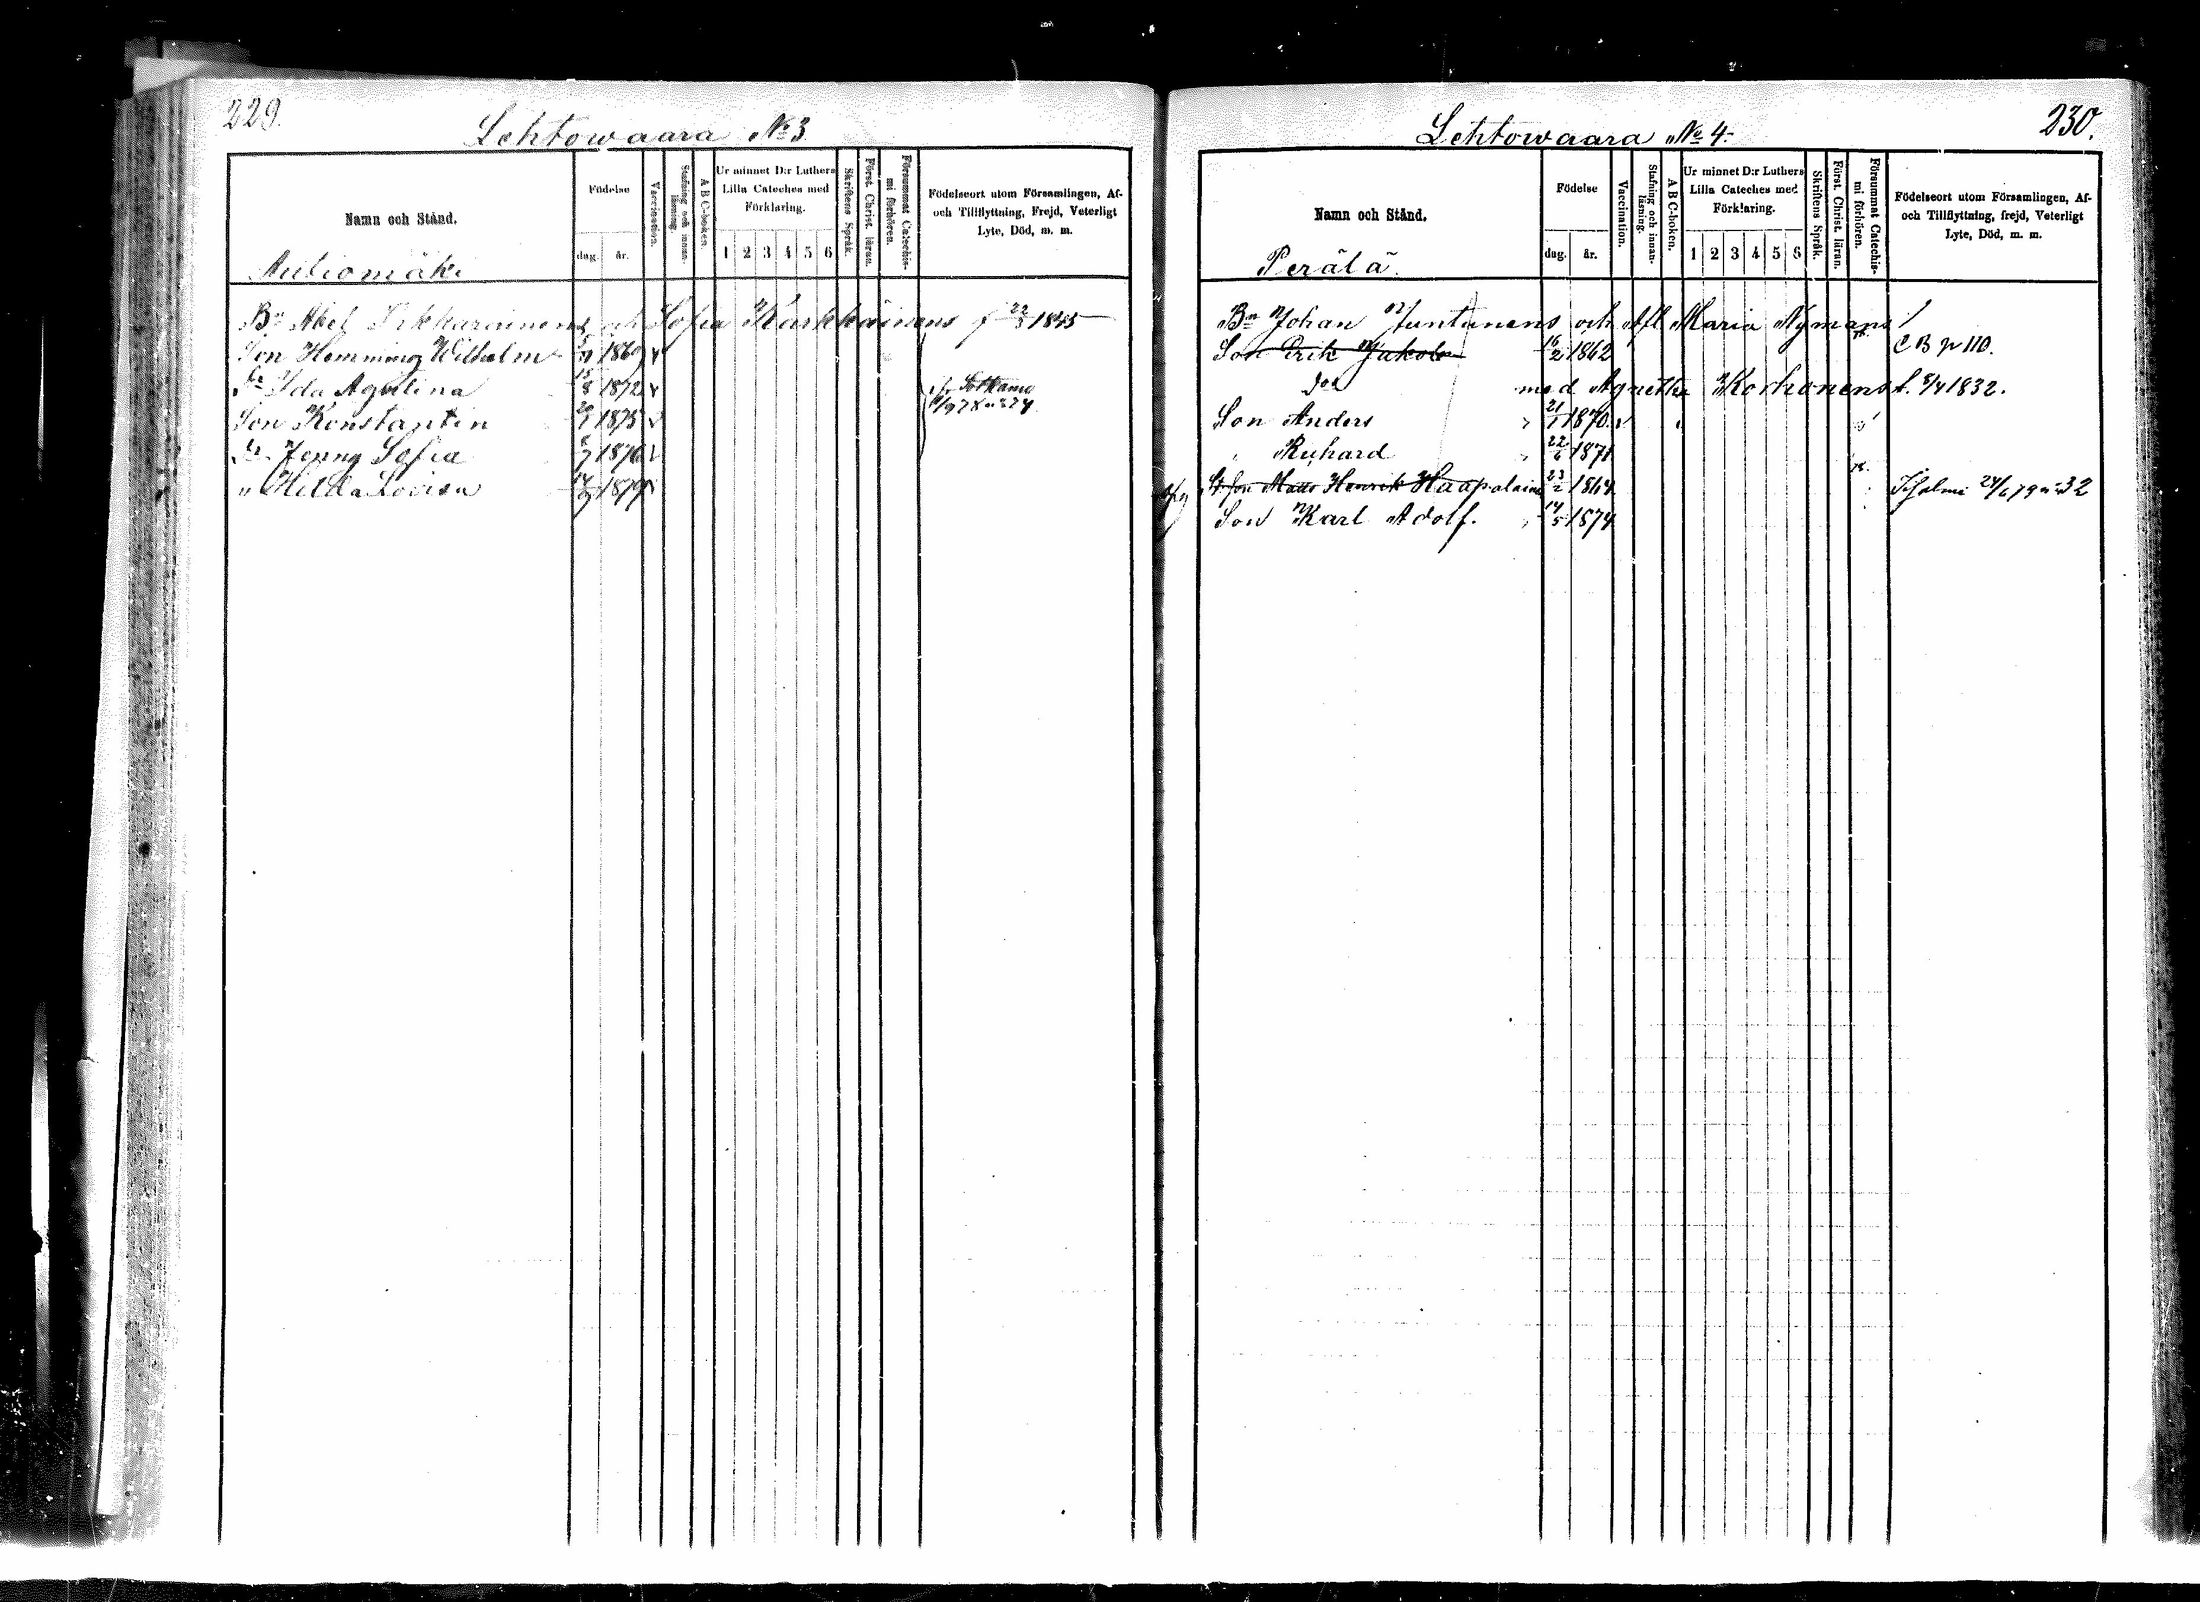 229.
Lehtowaara No 3
Namn och Stånd.
Födelse
dag. år.
Vaccination.
Stafning och innan-läsning.
A B C-boken.
Ur minnet D:r Luthers Lilla Cateches med Förklaring.
1 2 3 4 5 6
Skriftens Språk.
Först. Christ. läran.
Försummat Catechis-mi förhören.
Födelseort utom Församlingen, Af-
och Tillflyttning, Frejd, Veterligt
Lyte, Död, m. m.
Autiomäki
Bn Abel och Sofia Karkkainens f 1845
Son Hemming Wilhelm 1869
Dr Ida Aqvilina 15/8 1872
fr Sotkamo
Son Konstantin 1875
Dr Jenny Sofia 1876
" Hilda Lovisa 1879
230.
Lehtowaara No 4.
Namn och Stånd.
Födelse
dag. år.
Vaccination.
Stafning och innan-läsning.
A B C-boken.
Ur minnet D:r Luthers Lilla Cateches med Förklaring.
1 2 3 4 5 6
Skriftens Språk.
Först. Christ. läran.
Försummat Catechis-mi förhören.
Födelseort utom Församlingen, Af-
och Tillflyttning, frejd, Veterligt
Lyte, Död, m. m.
Perälä.
Bn Johan Juntunens och Afl Maria Nymans
Son Erik Jakob 16/2 1862 C B p 110.
med Agnetha Korhonens f. 8/4 1832.
Son Anders 21/1 1870
" Richard 22/6 1871
Matts Henrik Haapalain 23/2 1864
Son Karl Adolf. 14/5 1874